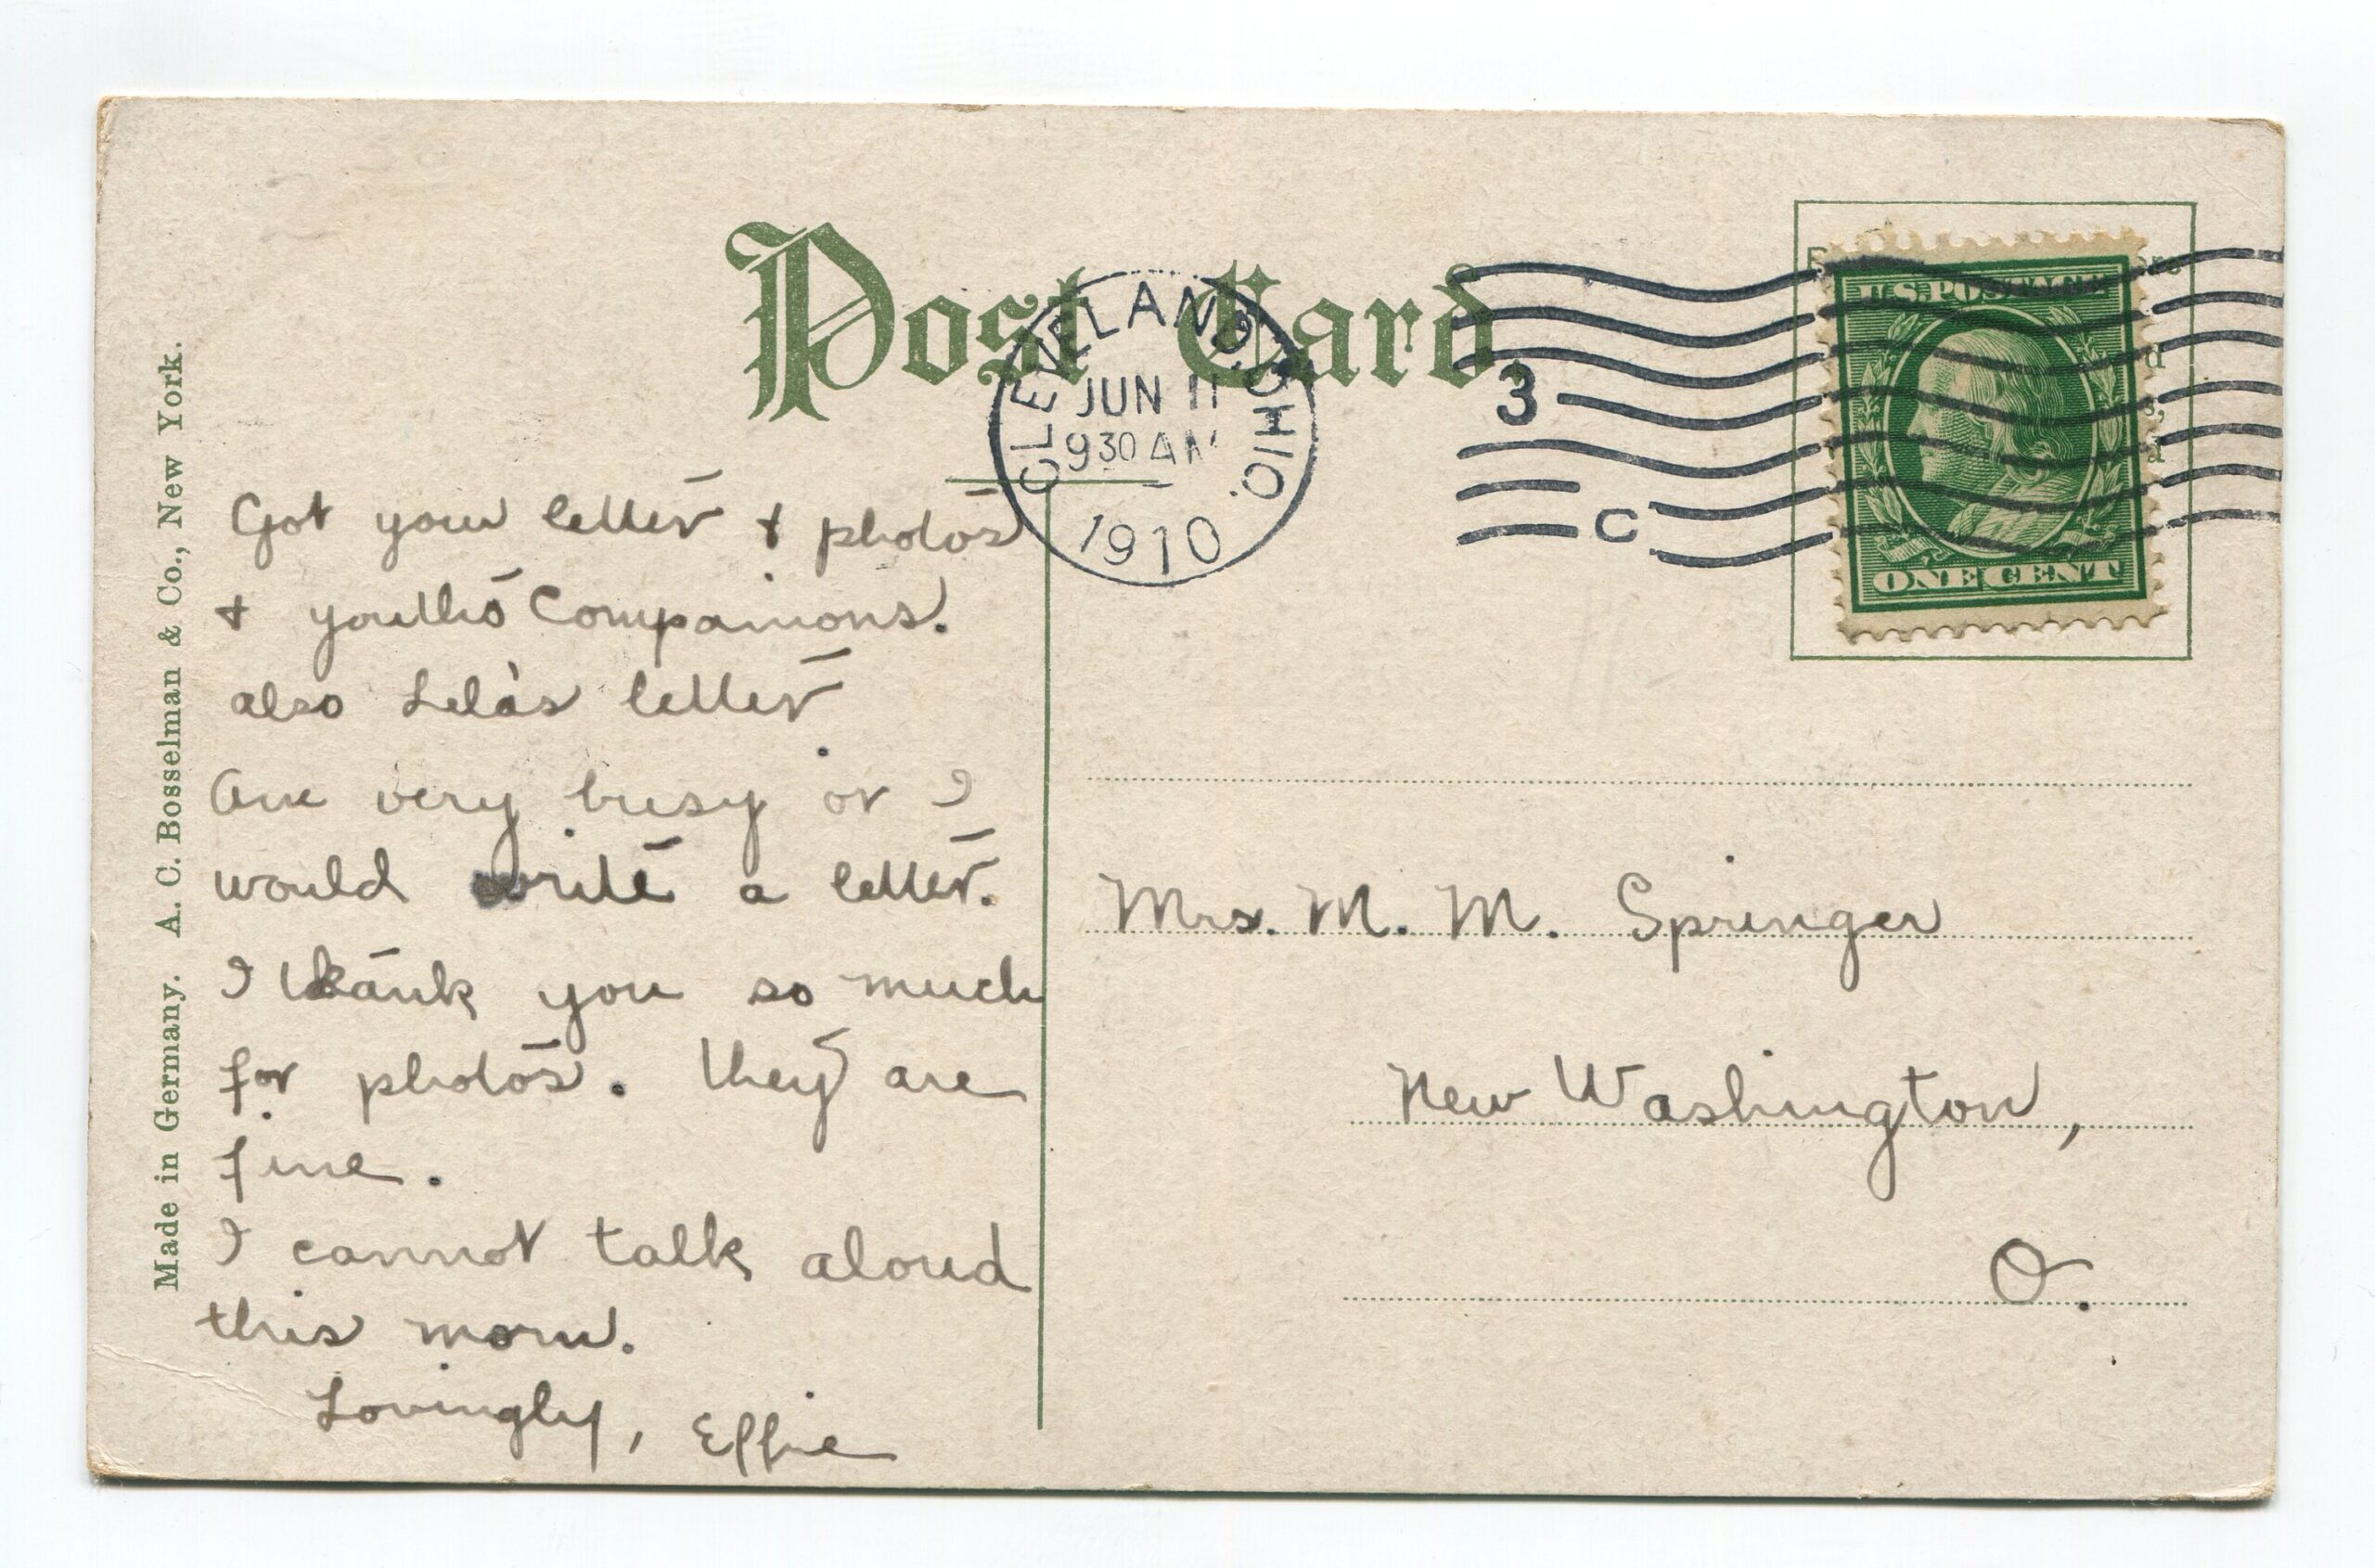 Post Card.
CLEVELAND, OHIO.
JUN 11
9 30 AM
1910
3
C
U.S. POSTAGE
ONE CENT
Made in Germany. A. C. Bosselman & Co., New York.
Got your letter & photos
& youths Companions.
also Lela's letter
Am very busy or I
would write a letter.
I thank you so much
for photos. they are
fine.
I cannot talk aloud
this morn.
Lovingly, Effie
Mrs. M. M. Springer
New Washington,
O.